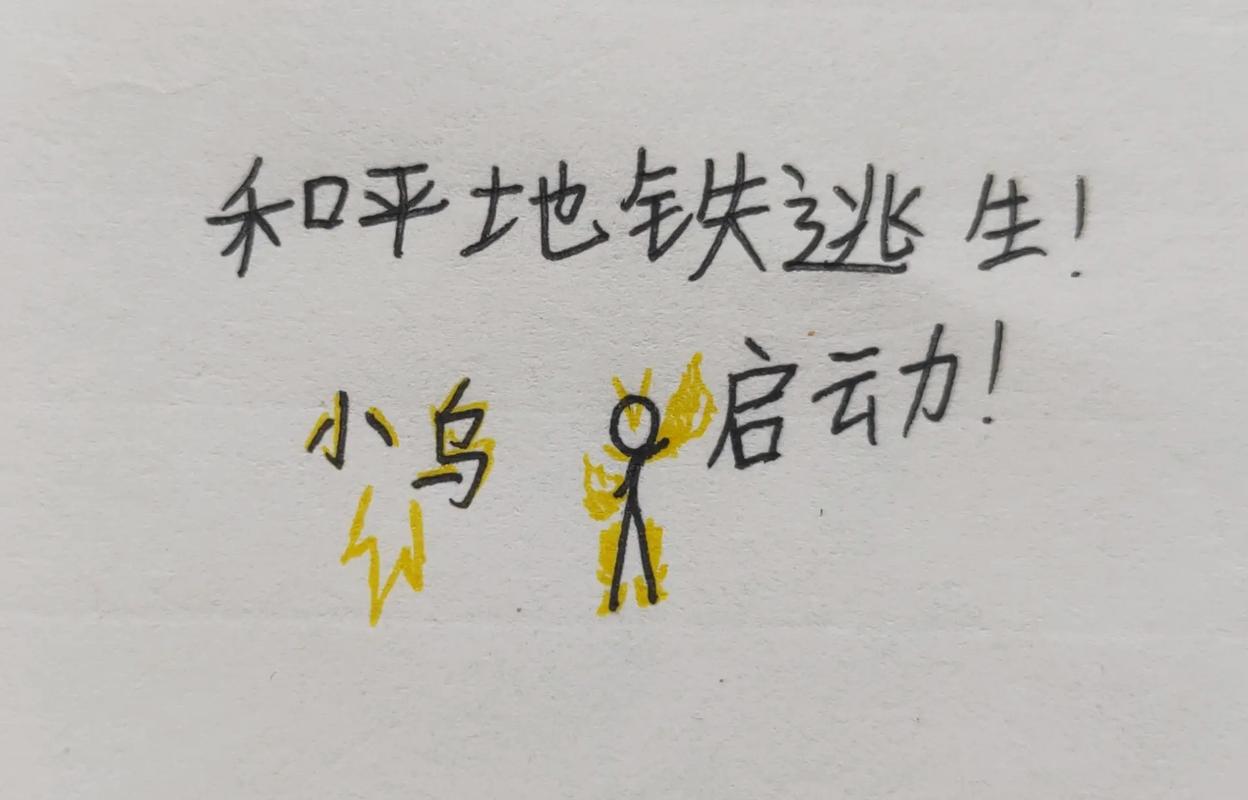 和平地铁逃生!
启动!
小乌